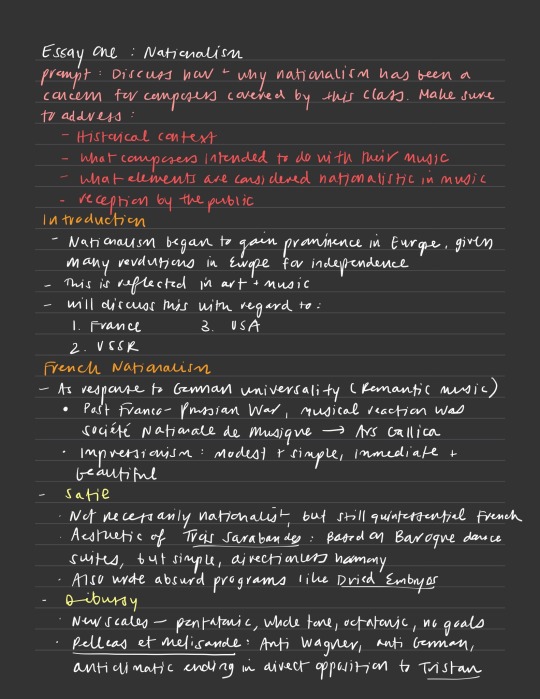 Essay One : Nationalism
prompt : Discuss how + why nationalism has been a
concern for composers covered by this class. Make sure
to address :
- Historical context
- what composers intended to do with their music
- what elements are considered nationalistic in music
- reception by the public
Introduction
- Nationalism began to gain prominence in Europe, given
many revolutions in Europe for independence
- This is reflected in art + music
- will discuss this with regard to :
1. France 3. USA
2. USSR
French Nationalism
- As response to German universality (Romantic music)
• Post Franco-Prussian War, musical reaction was
société Nationale de Musique → Ars Gallica
• Impressionism : modest + simple, immediate +
beautiful
- Satie
· Not necessarily nationalist, but still quintessential French
· Aesthetic of Trois Sarabandes : Based on Baroque dance
suites, but simple, directionless harmony
· Also wrote absurd programs like Dried Embryos
- Debussy
· New scales — pentatonic, whole tone, octatonic, no goals
· Pelleas et Melisande : Anti Wagner, anti German,
anticlimatic ending in direct opposition to Tristan